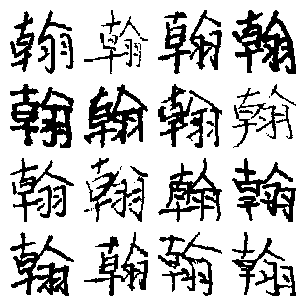 翰翰翰翰
翰翰翰翰
翰翰翰翰
翰翰翰翰